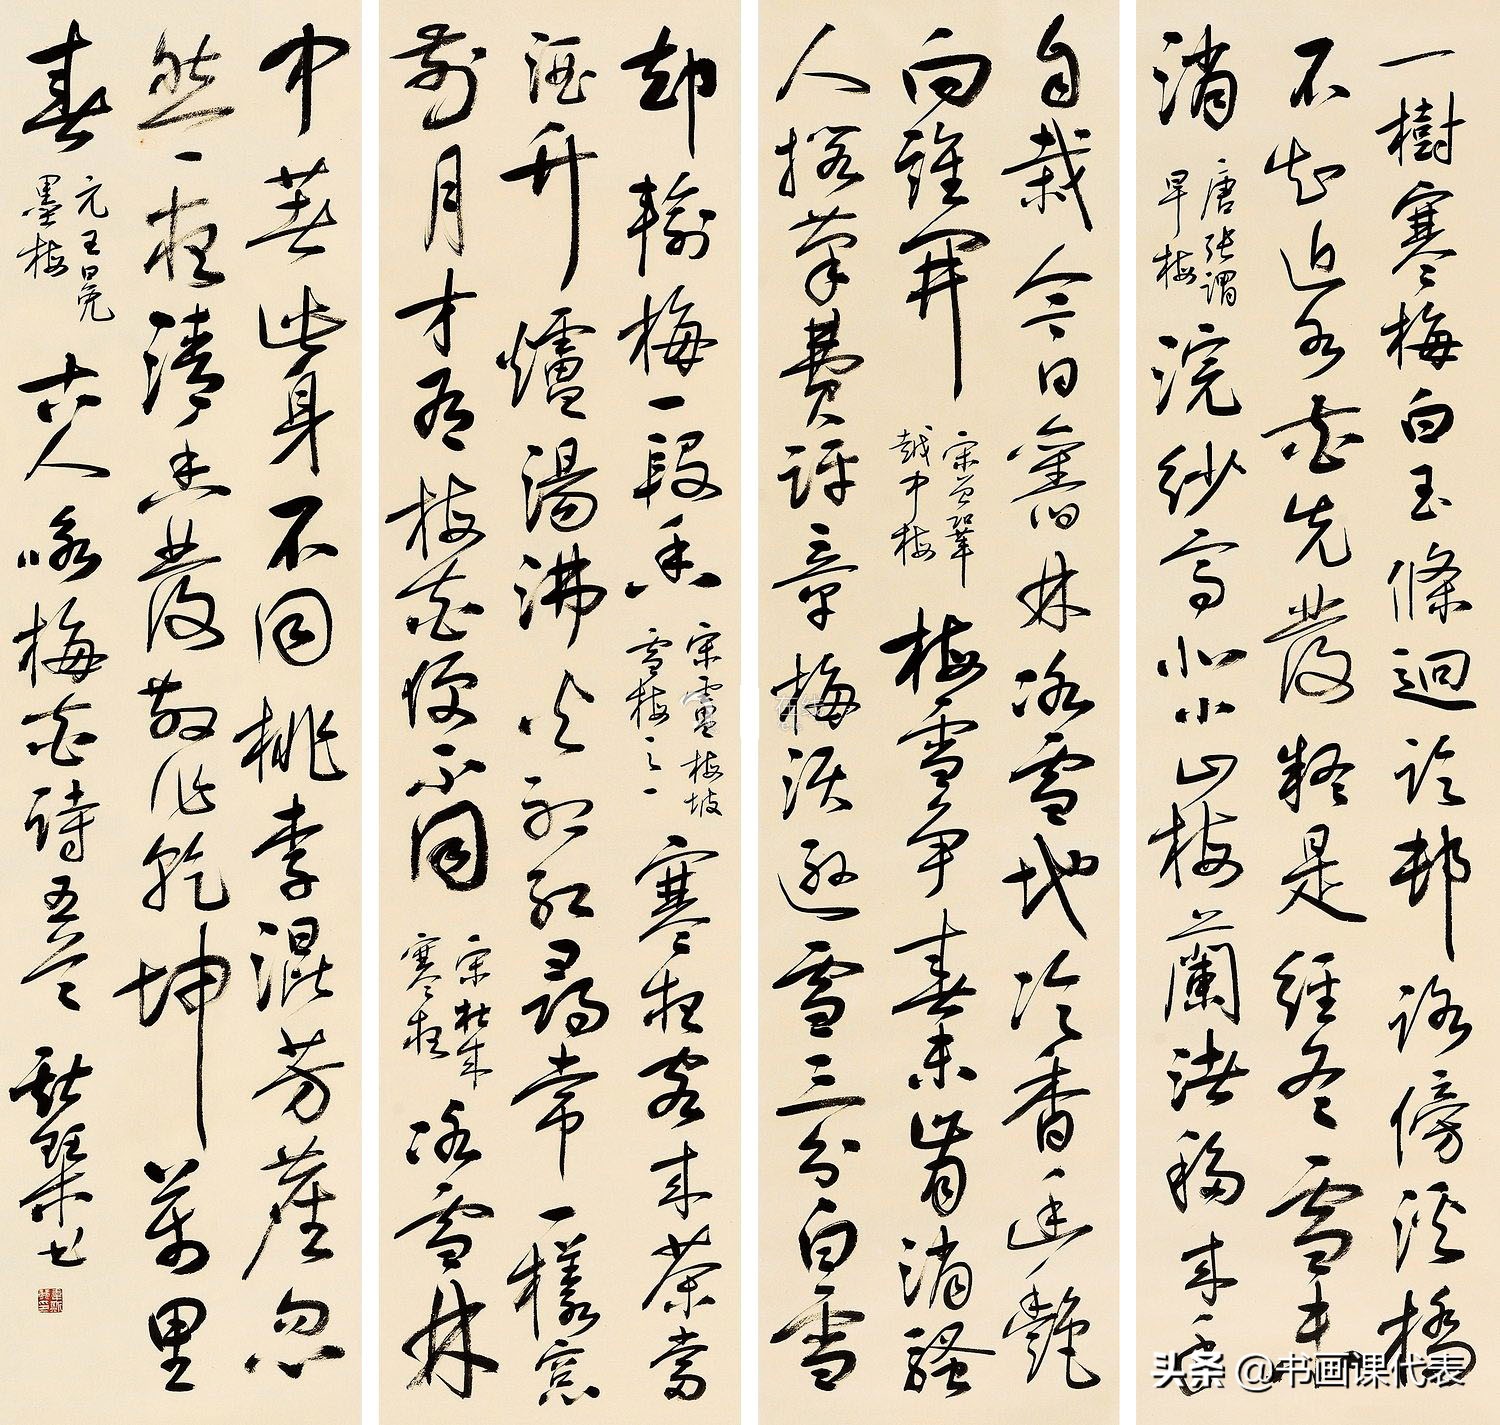 一樹寒梅白玉條迥臨邨路傍溪橋
不知近水花先發疑是經冬雪未
消
唐張謂
早梅
浣紗亭北小山梅蘭渚移來手
自栽今日舊林冰雪地冷香幽艷
向誰開
宋曾鞏
越中梅
梅雪争春未肯消騷
人擱筆費評章梅須遜雪三分白雪
却輸梅一段香
宋盧梅坡
雪梅之一
寒夜客來茶當
酒竹爐湯沸火初紅尋常一樣窓
前月才有梅花便不同
宋杜耒
寒夜
冰雪林
中著此身不同桃李混芳塵忽
然一夜清香發散作乾坤萬里
春
元王冕
墨梅
古人咏梅花詩五首
头条 @书画课代表